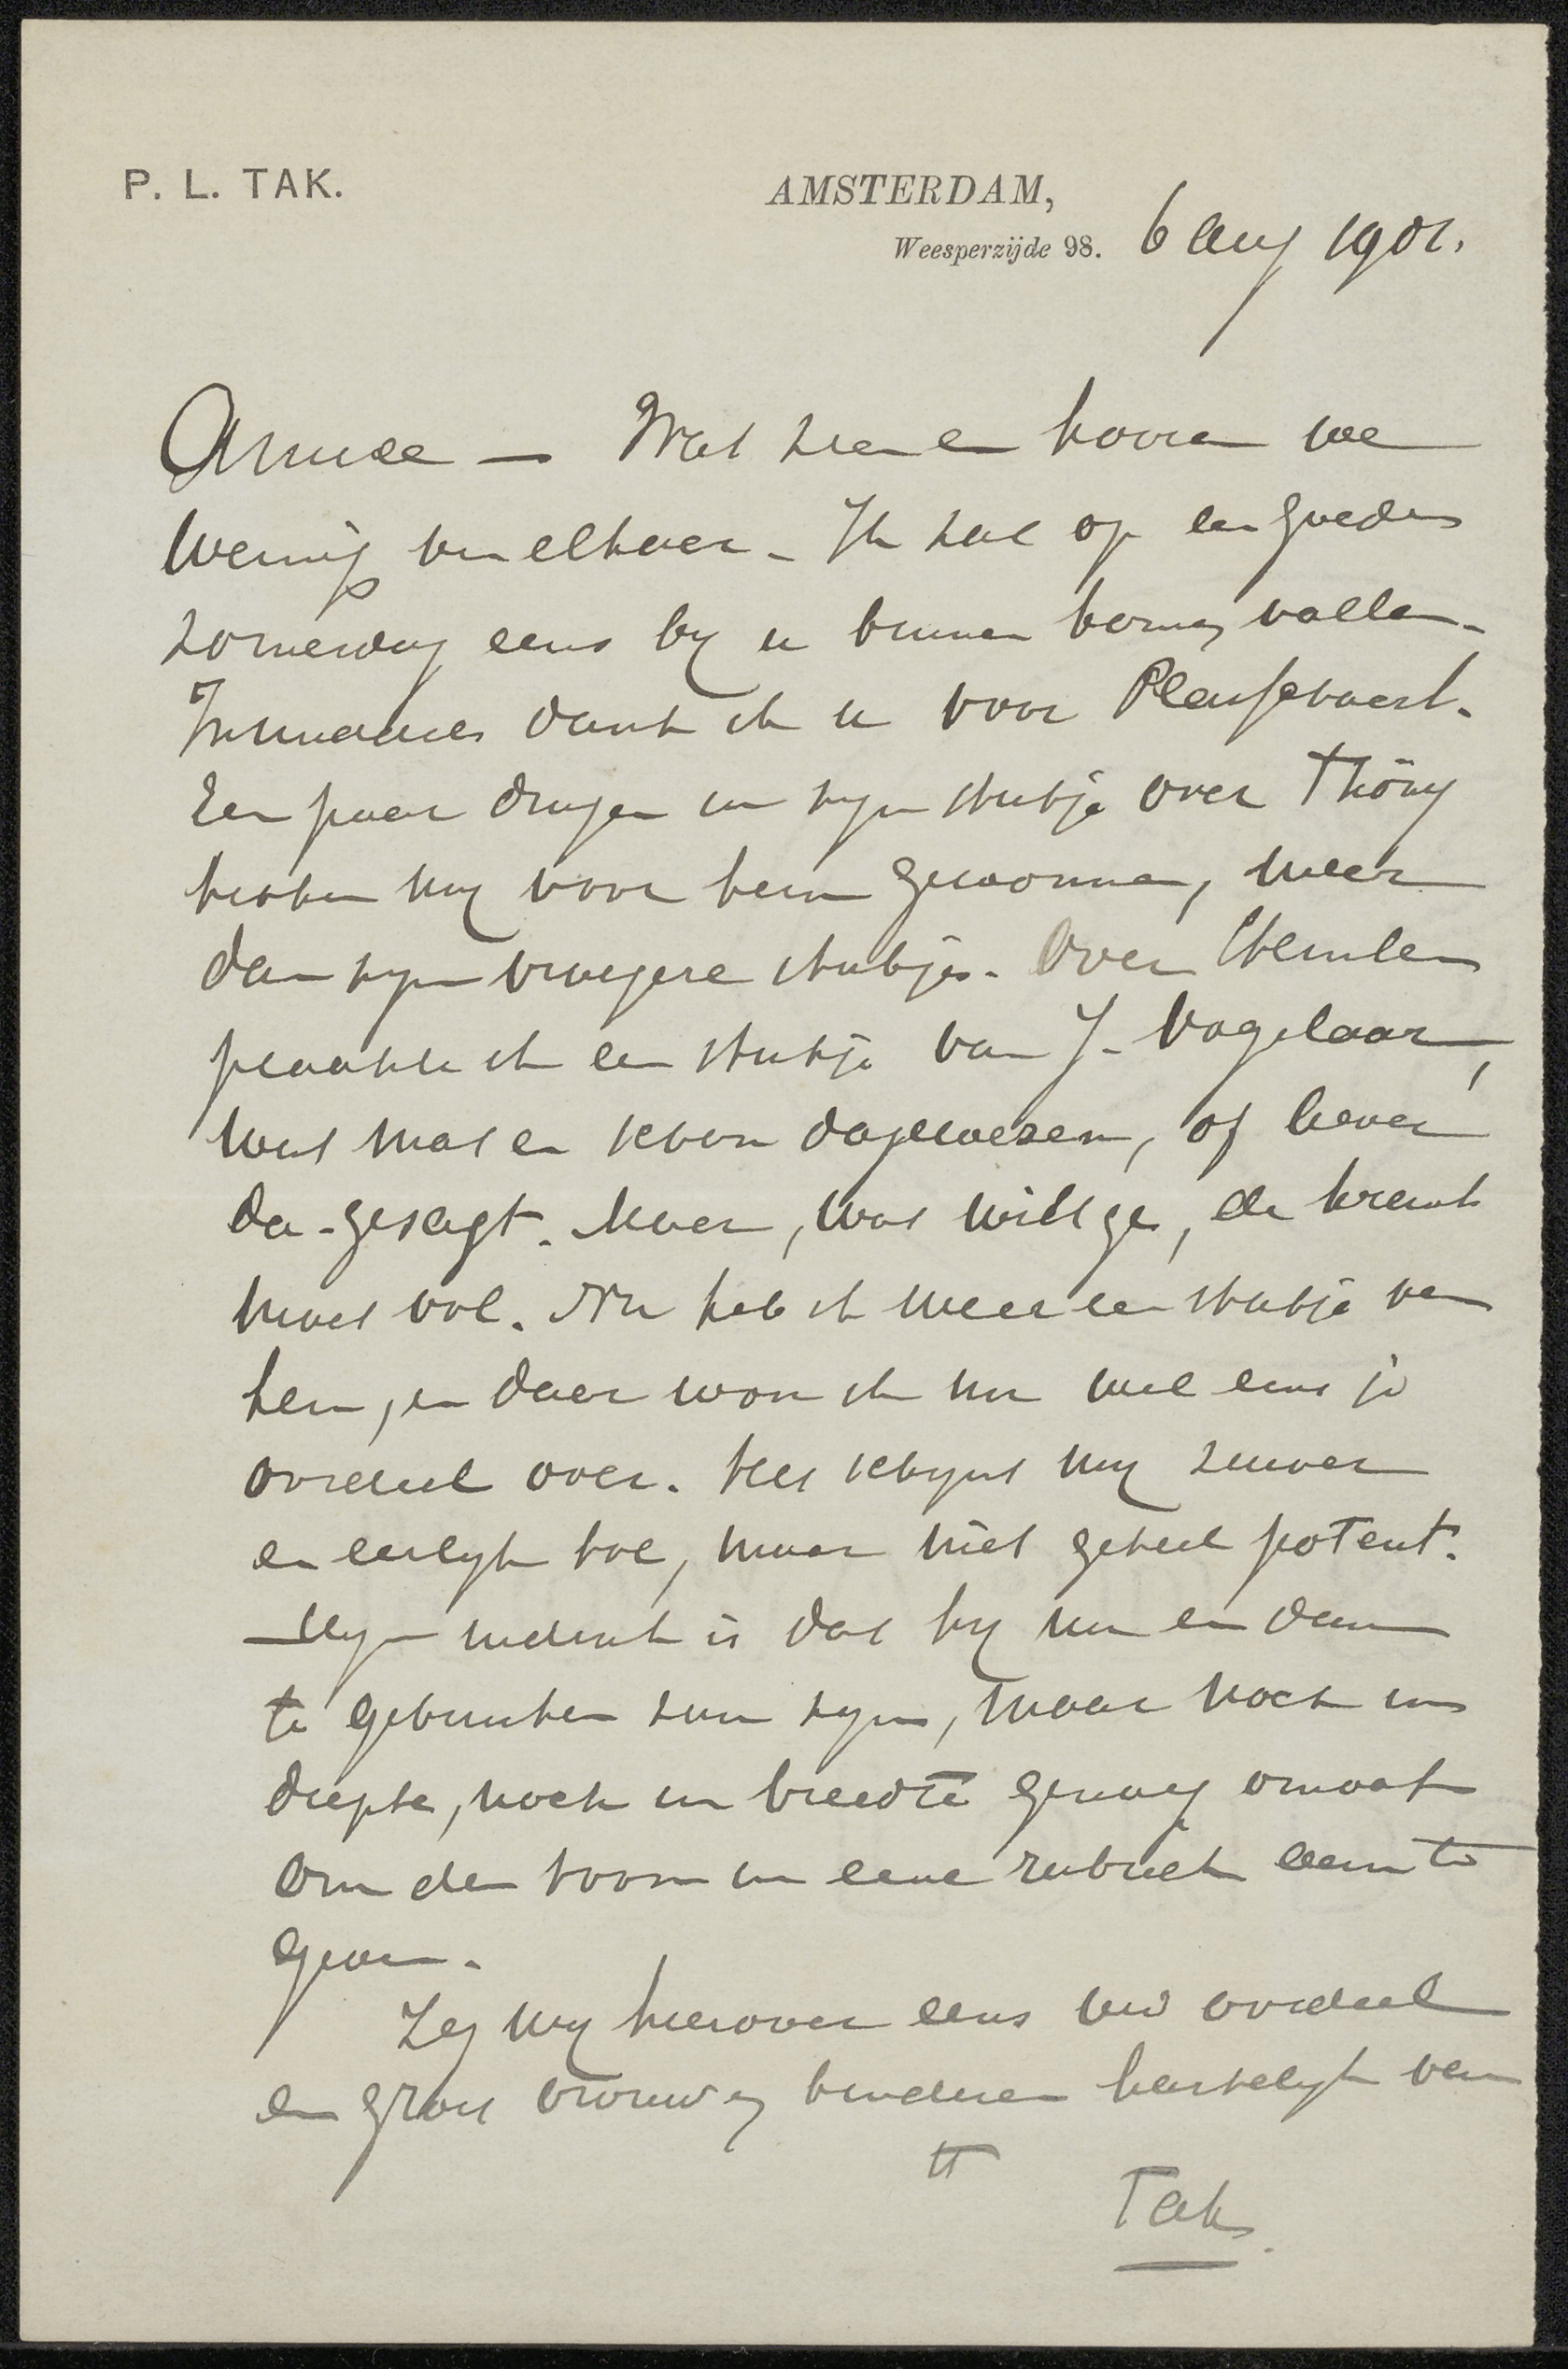 P. L. TAK.
AMSTERDAM,
Weesperzijde 98. 6 Aug 1901.
Amice — Wat zien en hooren we
weinig van elkaer. Ik zal op een goeden
zomerdag eens by u binnen komen vallen.
Inmiddels dank ik u voor Plasschaert.
Een paar dingen in zyn stukje over Thöny
hebben my voor hem gewonnen, meer
dan zyn vroegere stukjes. Over
plaatste ik een stukje van J. Vogelaar,
wat mat en schoon dagewezen, of liever
da-gesegt. Maer, wat wilt ge, de krant
moet vol. Nu heb ik weer een stukje van
hem, en daer wou ik nu wel eens je
oordeel over. Het schynt my zuiver
en eerlyk toe, maar niet geheel potent.
Myn indruk is dat hy nu en dan
te gebruiken zou zyn, maar noch in
diepte, noch in breedte genoeg omvat
om den toon in eene rubriek aan te
geven.
Zeg my hierover eens uw oordeel
en groet vrouw en kinderen hartelyk van
tt
Tak.